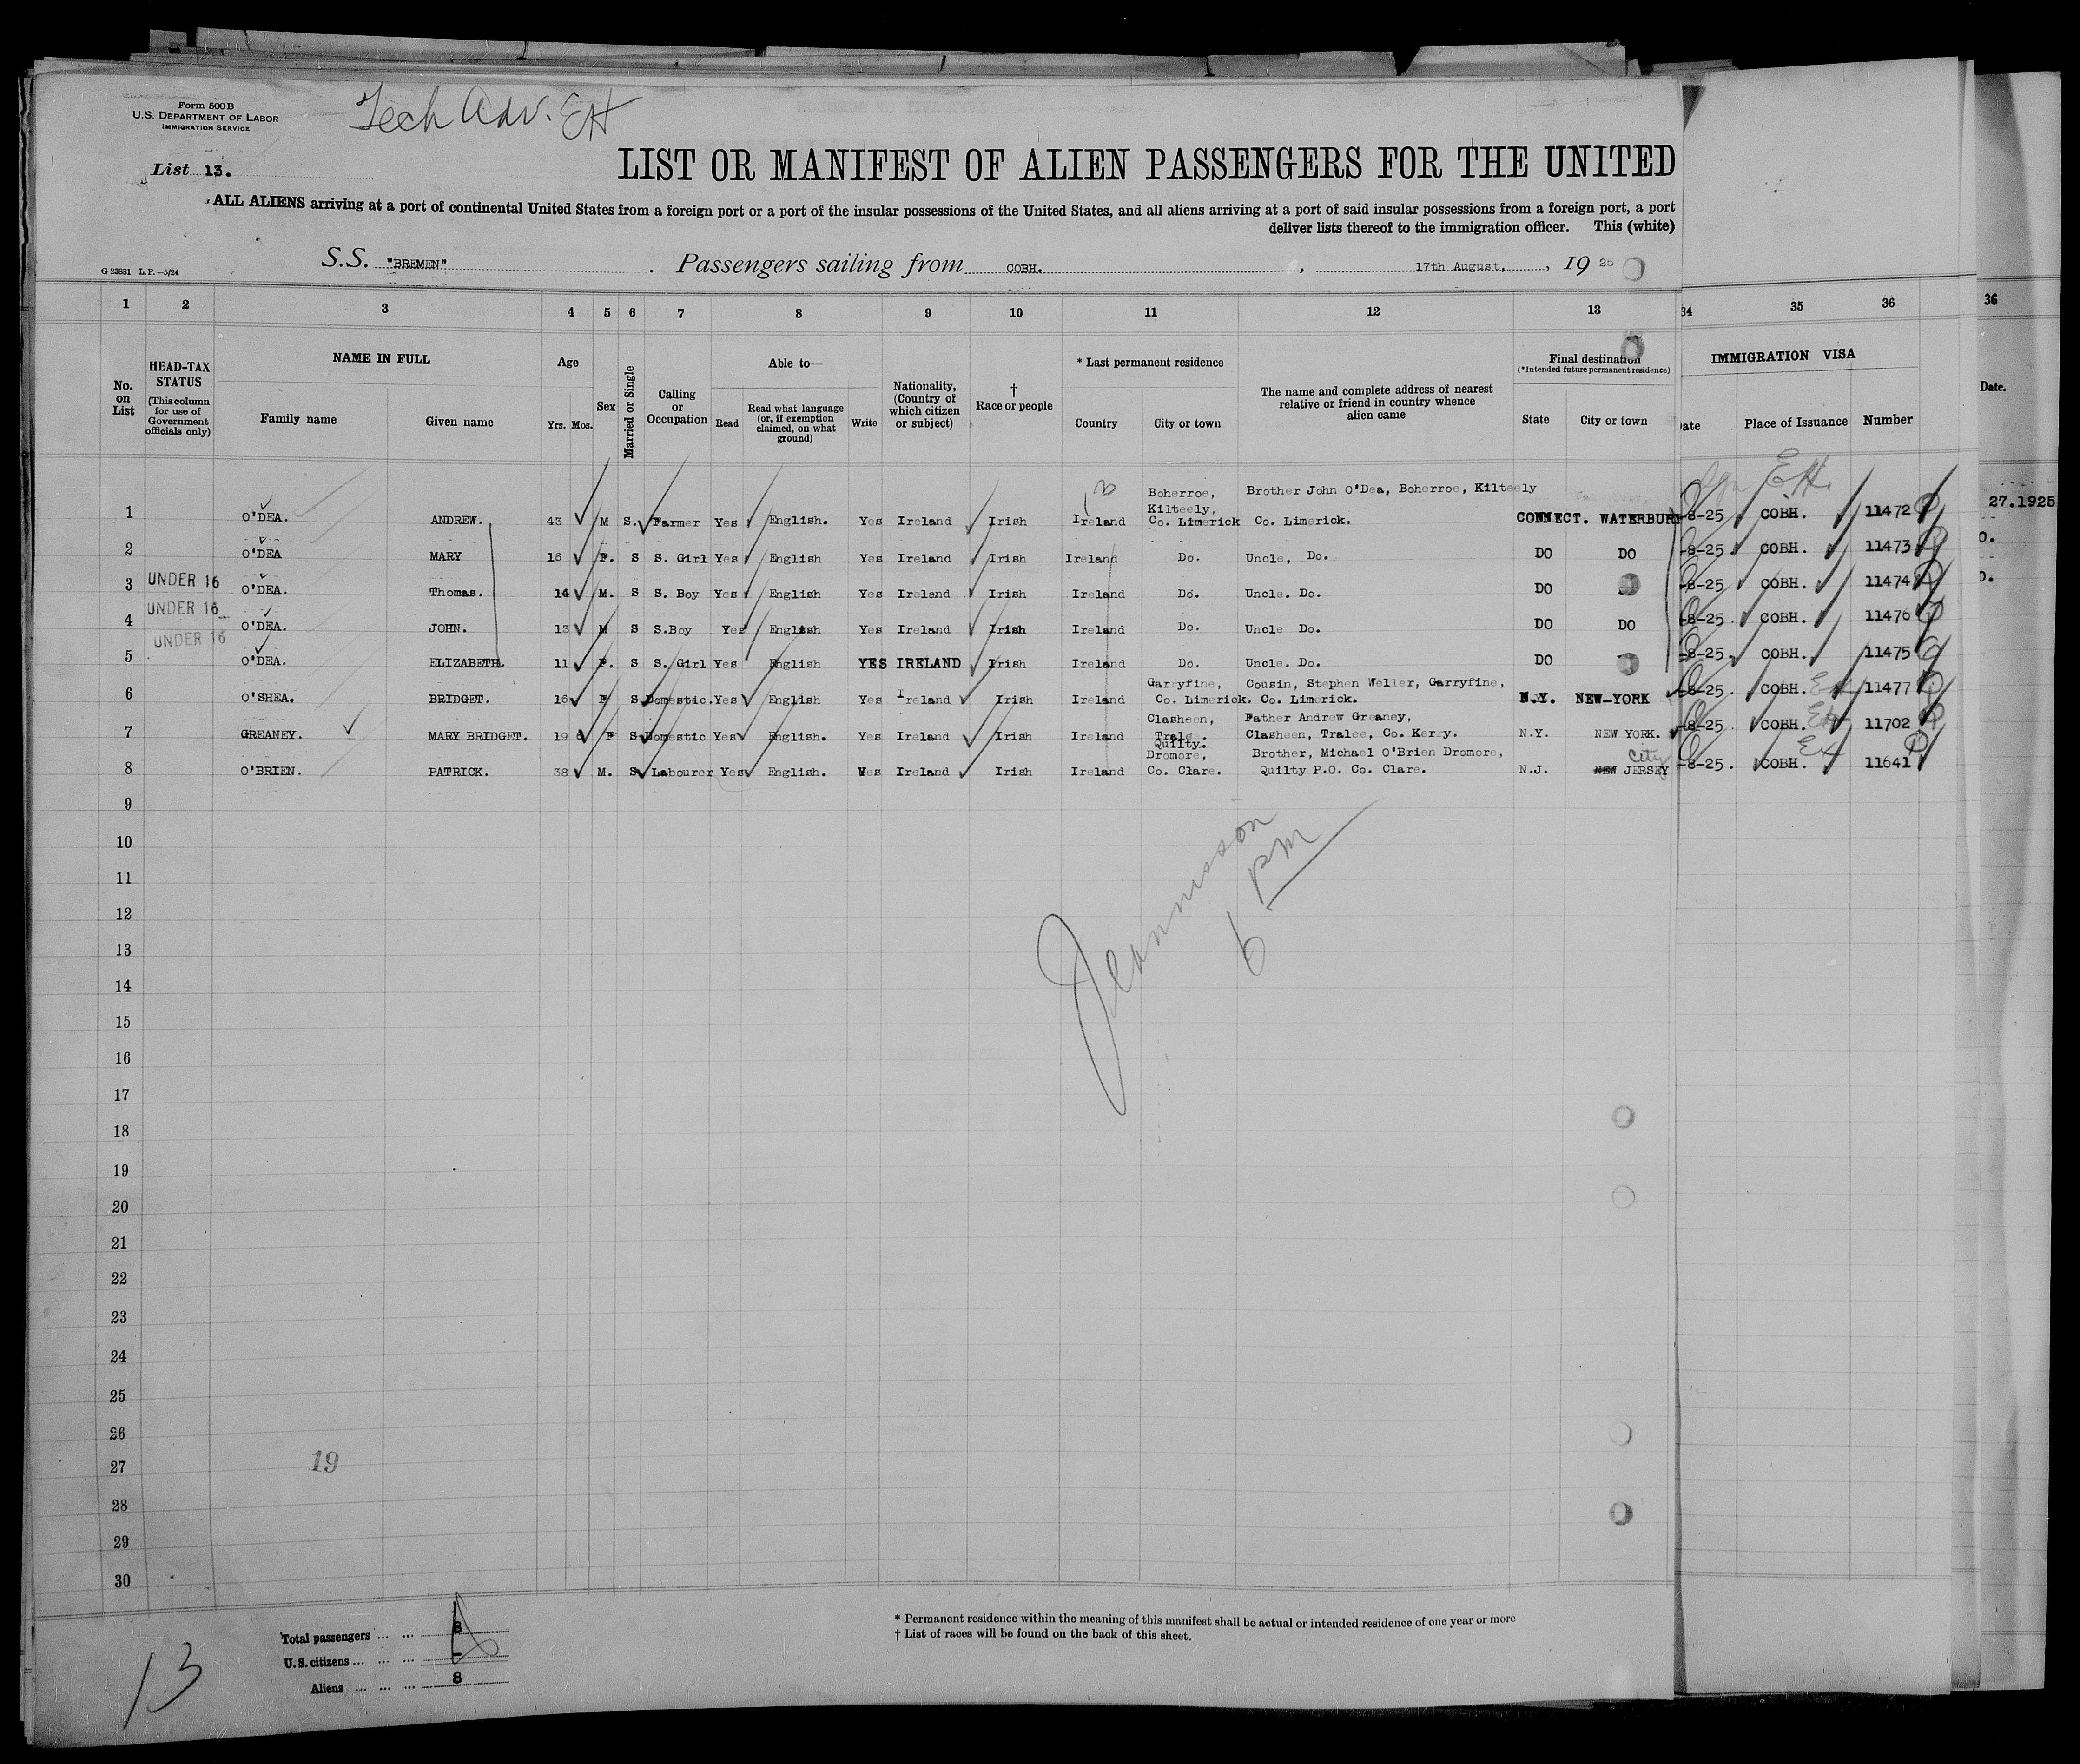 Form 500B
U.S. DEPARTMENT OF LABOR
IMMIGRATION SERVICE
Tech Adv. EH
List 13.
LIST OR MANIFEST OF ALIEN PASSENGERS FOR THE UNITED
ALL ALIENS arriving at a port of continental United States from a foreign port or a port of the insular possessions of the United States, and all aliens arriving at a port of said insular possessions from a foreign port, a port
deliver lists thereof to the immigration officer. This (white)
G 23881 L.P.—5/24
S.S. "BREMEN" Passengers sailing from COBH. , 17th August, , 19 25
1 2 3 4 5 6 7 8 9 10 11 12 13 34 35 36 36
No. on List
HEAD-TAX STATUS (This column for use of Government officials only)
NAME IN FULL
Family name Given name
Age
Yrs. Mos.
Sex
Married or Single
Calling or Occupation
Able to—
Read
Read what language (or, if exemption claimed, on what ground)
Write
Nationality, (Country of which citizen or subject)
† Race or people
* Last permanent residence
Country City or town
The name and complete address of nearest relative or friend in country whence alien came
Final destination
(*Intended future permanent residence)
State City or town
IMMIGRATION VISA
Date Place of Issuance Number
Date.
EH.
27.1925
1 O'DEA. ANDREW. 43 M S. Farmer Yes English. Yes Ireland Irish Ireland Boherroe, Kilteely, Co. Limerick Brother John O'Dea, Boherroe, Kilteely Co. Limerick. CONNECT. WATERBURY -8-25 COBH. 11472
2 O'DEA MARY 16 F. S S. Girl Yes English Yes Ireland Irish Ireland Do. Uncle, Do. DO DO -8-25 COBH. 11473
UNDER 16
3 O'DEA. Thomas. 14 M. S S. Boy Yes English Yes Ireland Irish Ireland Do. Uncle. Do. DO -8-25 COBH. 11474
UNDER 16
4 O'DEA. JOHN. 13 M S S.Boy Yes English Yes Ireland Irish Ireland Do. Uncle Do. DO DO -8-25 COBH. 11476
UNDER 16
5 O'DEA. ELIZABETH. 11 F. S S. Girl Yes English YES IRELAND Irish Ireland Do. Uncle. Do. DO -8-25. COBH. 11475
6 O'SHEA. BRIDGET. 16 F S Domestic. Yes English Yes Ireland Irish Ireland Garryfine, Co. Limerick. Cousin, Stephen Weller, Garryfine, Co. Limerick. N.Y. NEW-YORK -8-25. COBH. EH 11477
7 GREANEY. MARY BRIDGET. 19 6 F S Domestic Yes English. Yes Ireland Irish Ireland Clasheen, Trale. Father Andrew Greaney, Clasheen, Tralee, Co. Kerry. N.Y. NEW YORK. -8-25 COBH. EH 11702
8 O'BRIEN. PATRICK. 38 M. S Labourer Yes English. Yes Ireland Irish Ireland Quilty. Dromore, Co. Clare. Brother, Michael O'Brien Dromore, Quilty P.O. Co. Clare. N.J. NEW JERSEY City -8-25. COBH. EH 11641
9
10
11
12
13
14
15
16
17
18
19
20
21
22
23
24
25
26
27
28
29
30
6 pm
19
Total passengers ... ... 8
U.S. citizens ... ... ... -
Aliens ... ... ... 8
13
* Permanent residence within the meaning of this manifest shall be actual or intended residence of one year or more
† List of races will be found on the back of this sheet.